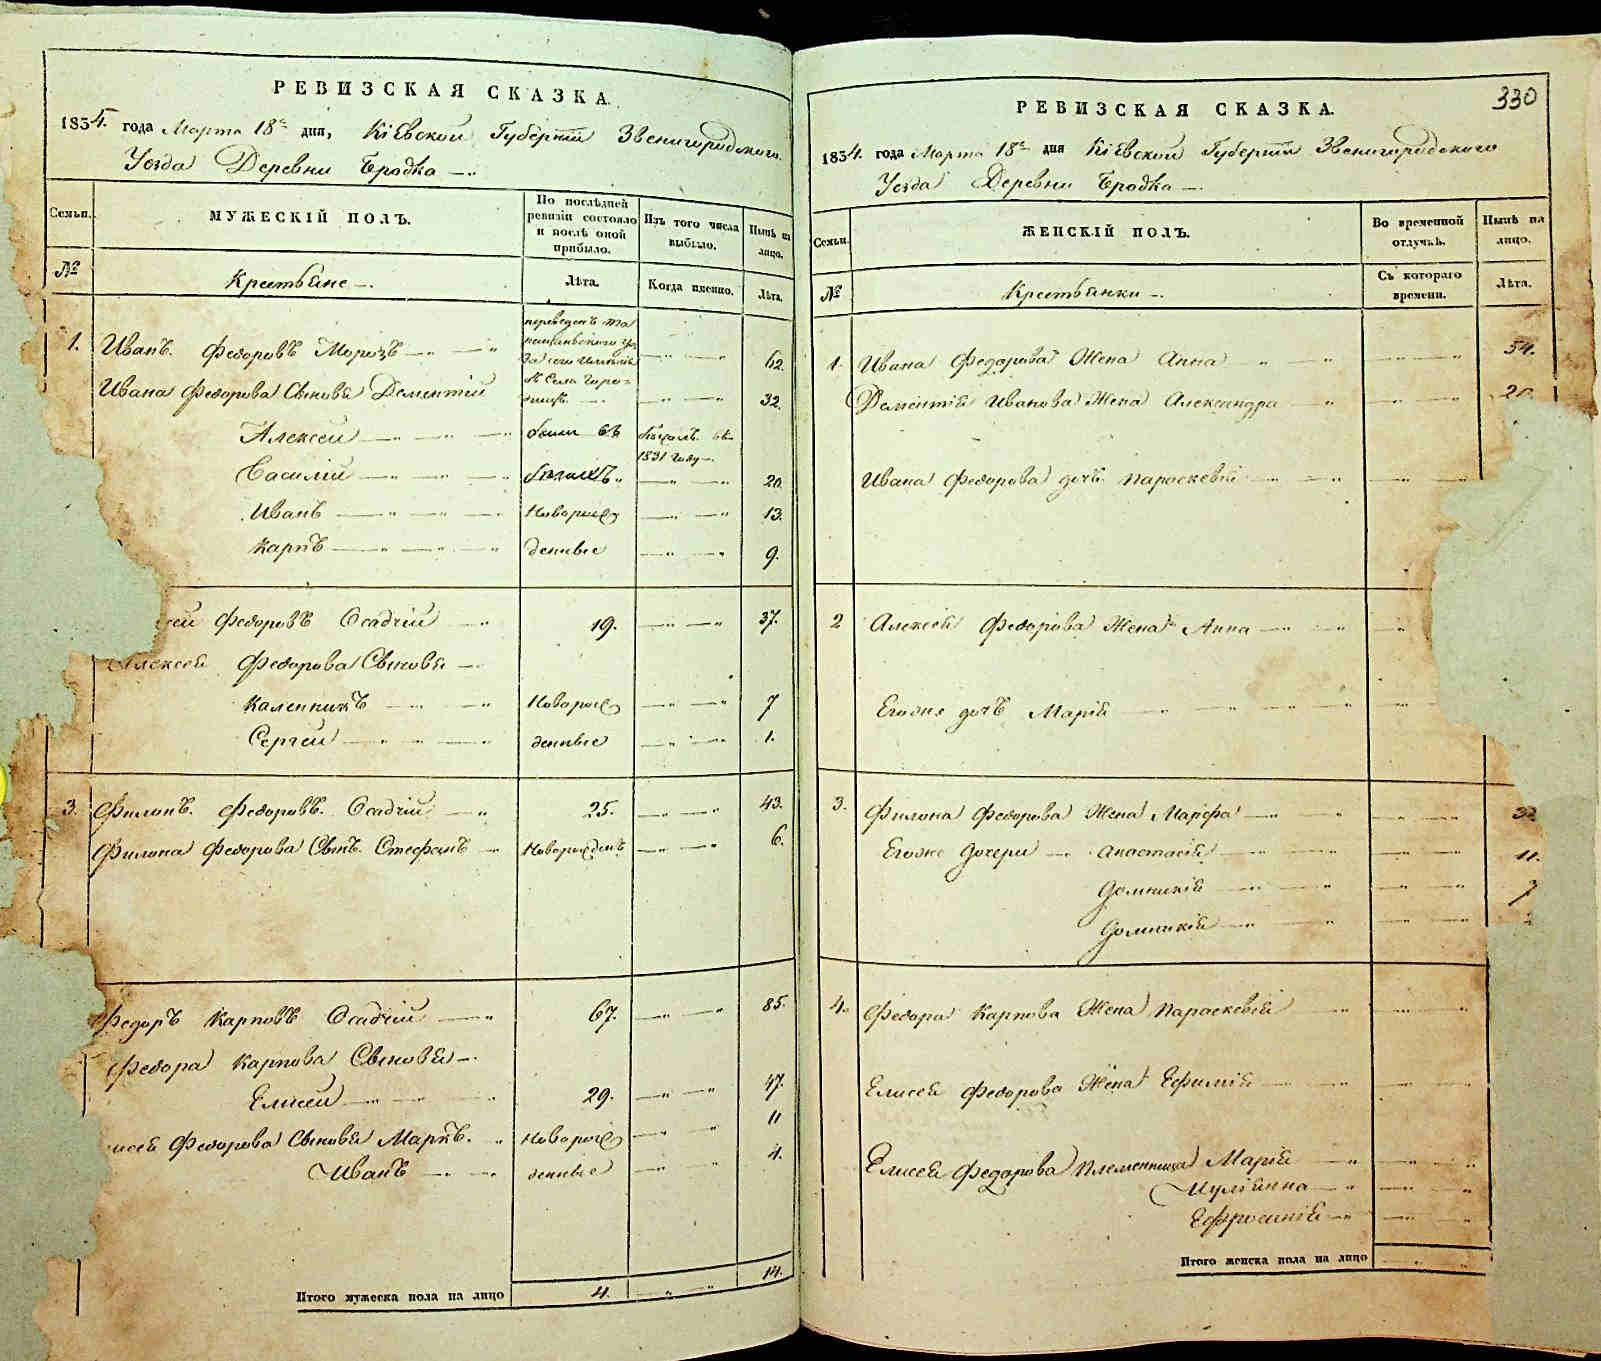 РЕВИЗСКАЯ СКАЗКА.
1834. года Марта 18го дня, Кіевской Губерніи Звенигородского
Уезда Деревни Бродка
Семьи.
МУЖЕСКІЙ ПОЛЪ.
По послѣдней ревизіи состояло и послѣ оной прибыло.
Изъ того числа выбыло.
Нынѣ на лицо.
№
Крестьяне
Лѣта.
Когда именно.
Лѣта.
1. Иванъ Федоровъ Морозъ 62.
переведенъ
Ивана Федорова Сыновья Дементій 32.
Алексей
1831 году
Василій 20.
Иванъ Новорож 13.
Карпъ денные 9.
сей Федоровъ Осадчій 19. 37.
Алексея Федорова Сыновья
Каленникъ Новорож 7
Сергей денные 1.
3. Филонъ Федоровъ Осадчій 25. 43.
Филона Федорова Сынъ Стефанъ Новорожденъ 6.
Федоръ Карповъ Осадчій 67. 85.
Федора Карпова Сыновья
Елисей 29. 47.
исея Федорова Сыновья Маркъ Новорож 11
Иванъ денные 4.
Итого мужеска пола на лицо 4. 14.
330
РЕВИЗСКАЯ СКАЗКА.
1834. года Марта 18го дня Кіевской Губерніи Звенигородского
Уезда Деревни Бродка
Семьи.
ЖЕНСКІЙ ПОЛЪ.
Во временной отлучкѣ.
Нынѣ на лицо.
№
Крестьянки
Съ котораго времени.
Лѣта.
1. Ивана Федорова Жена Анна 54.
Дементія Иванова Жена Александра
Ивана Федорова дочь Параскевія
2 Алексея Федорова Жена Анна
Егоже дочь Марія
3. Филона Федорова Жена Марфа
Егоже Дочери Анастасія 11.
Домникія
Домникія
4. Федора Карпова Жена Параскевія
Елисея Федорова Жена Ефимія
Елисея Федорова Племянница Марія
Иуліянна
Ефросинія
Итого женска пола на лицо